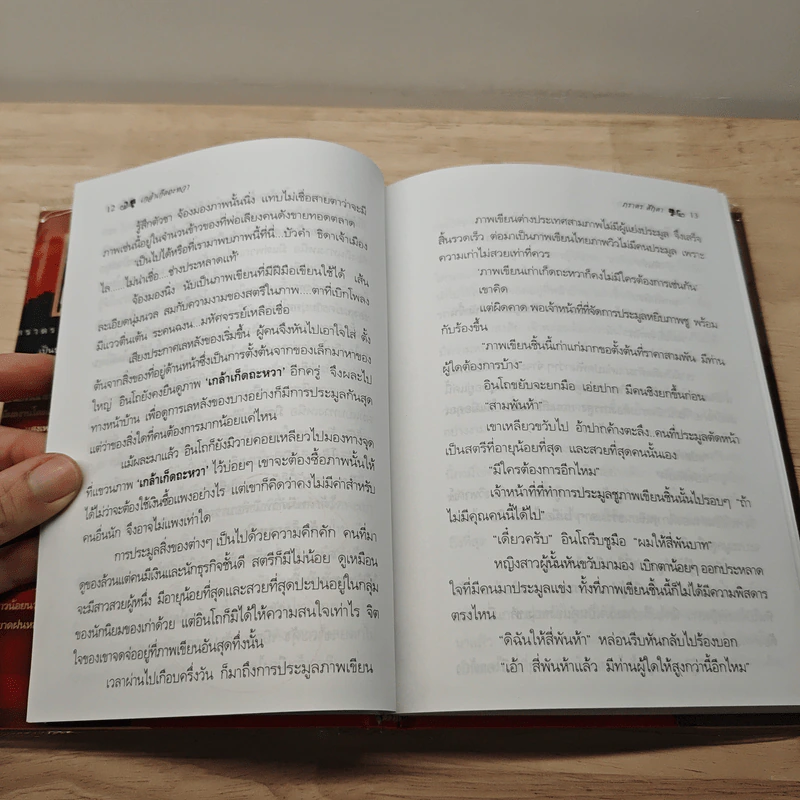 12 เกล้าเก็ดถะหวา
รู้สึกตัวชา จ้องมองภาพนั้นนิ่ง แทบไม่เชื่อสายตาว่าจะมี
ภาพเช่นนี้อยู่ในจำนวนข้าวของที่พ่อเลียงคนดังขายทอดตลาด
'เป็นไปได้หรือที่เรามาพบภาพนี้ที่นี่...บัวคำ ธิดาเจ้าเมือง
ไล ....ไม่น่าเชื่อ...ช่างประหลาดแท้'
จ้องมองนิ่ง นับเป็นภาพเขียนที่มีฝีมือเขียนใช้ได้ เส้น
ละเอียดนุ่มนวล สมกับความงามของสตรีในภาพ....ตาที่เบิกโพลง
มีแววตื่นเต้น ระคนฉงน...มหัศจรรย์เหลือเชื่อ
เสียงประกาศเลหลังของเริ่มขึ้น ผู้คนจึงหันไปเอาใจใส่ ตั้ง
ต้นจากสิ่งของที่อยู่ด้านหน้าซึ่งเป็นการตั้งต้นจากของเล็กมาหาของ
ใหญ่ อินโถยังคงยืนดูภาพ 'เกล้าเก็ดถะหวา' อีกครู่ จึงผละไป
ทางหน้าบ้าน เพื่อดูการเลหลังของบางอย่างก็มีการประมูลกันสุด
แต่ว่าของสิ่งใดที่คนต้องการมากน้อยแค่ไหน
แม้ผละมาแล้ว อินโถก็ยังมิวายคอยเหลียวไปมองทางจุด
ที่แขวนภาพ 'เกล้าเก็ดถะหวา' ไว้บ่อยๆ เขาจะต้องซื้อภาพนั้นให้
ได้ไม่ว่าจะต้องใช้เงินซื้อแพงอย่างไร แต่เขาก็คิดว่าคงไม่มีค่าสำหรับ
คนอื่นนัก จึงอาจไม่แพงเท่าใด
การประมูลสิ่งของต่างๆ เป็นไปด้วยความคึกคัก คนที่มา
ดูของล้วนแต่คนมีเงินและนักธุรกิจชั้นดี สตรีก็มีไม่น้อย ดูเหมือน
จะมีสาวสวยผู้หนึ่ง มีอายุน้อยที่สุดและสวยที่สุดปะปนอยู่ในกลุ่ม
ของนักนิยมของเก่าด้วย แต่อินโถก็มิได้ให้ความสนใจเท่าไร จิต
ใจของเขาจดจ่ออยู่ที่ภาพเขียนอันสุดทึ่งนั้น
เวลาผ่านไปเกือบครึ่งวัน ก็มาถึงการประมูลภาพเขียน
ภราดร ศักดา 13
ภาพเขียนต่างประเทศสามภาพไม่มีผู้แย่งประมูล จึงเสร็จ
สิ้นรวดเร็ว ต่อมาเป็นภาพเขียนไทยภาพวิวไม่มีคนประมูล เพราะ
ความเก่าไม่สวยเท่าที่ควร
'ภาพเขียนเก่าเก็ดถะหวาก็คงไม่มีใครต้องการเช่นกัน'
เขาคิด
แต่ผิดคาด พอเจ้าหน้าที่ที่จัดการประมูลหยิบภาพชู พร้อม
กับร้องขึ้น
"ภาพเขียนชิ้นนี้เก่าแก่มากขอตั้งต้นที่ราคาสามพัน มีท่าน
ผู้ใดต้องการบ้าง"
อินโถขยับจะยกมือ เอ่ยปาก มีคนชิงยกขึ้นก่อน
"สามพันห้า"
เขาเหลียวขวับไป อ้าปากค้างตะลึง...คนที่ประมูลตัดหน้า
เป็นสตรีที่อายุน้อยที่สุด และสวยที่สุดคนนั้นเอง
"มีใครต้องการอีกไหม"
เจ้าหน้าที่ที่ทำการประมูลชูภาพเขียนชิ้นนั้นไปรอบๆ "ถ้า
ไม่มีคุณคนนี้ได้ไป"
"เดี๋ยวครับ" อินโถรีบชูมือ "ผมให้สี่พันบาท"
หญิงสาวผู้นั้นหันขวับมามอง เบิกตาน้อยๆ ออกประหลาด
ใจที่มีคนมาประมูลแข่ง ทั้งที่ภาพเขียนชิ้นนี้ก็ไม่ได้มีความพิสดาร
ตรงไหน
"ดิฉันให้สี่พันห้า" หล่อนรีบหันกลับไปร้องบอก
"เอ้า สี่พันห้าแล้ว มีท่านผู้ใดให้สูงกว่านี้อีกไหม"